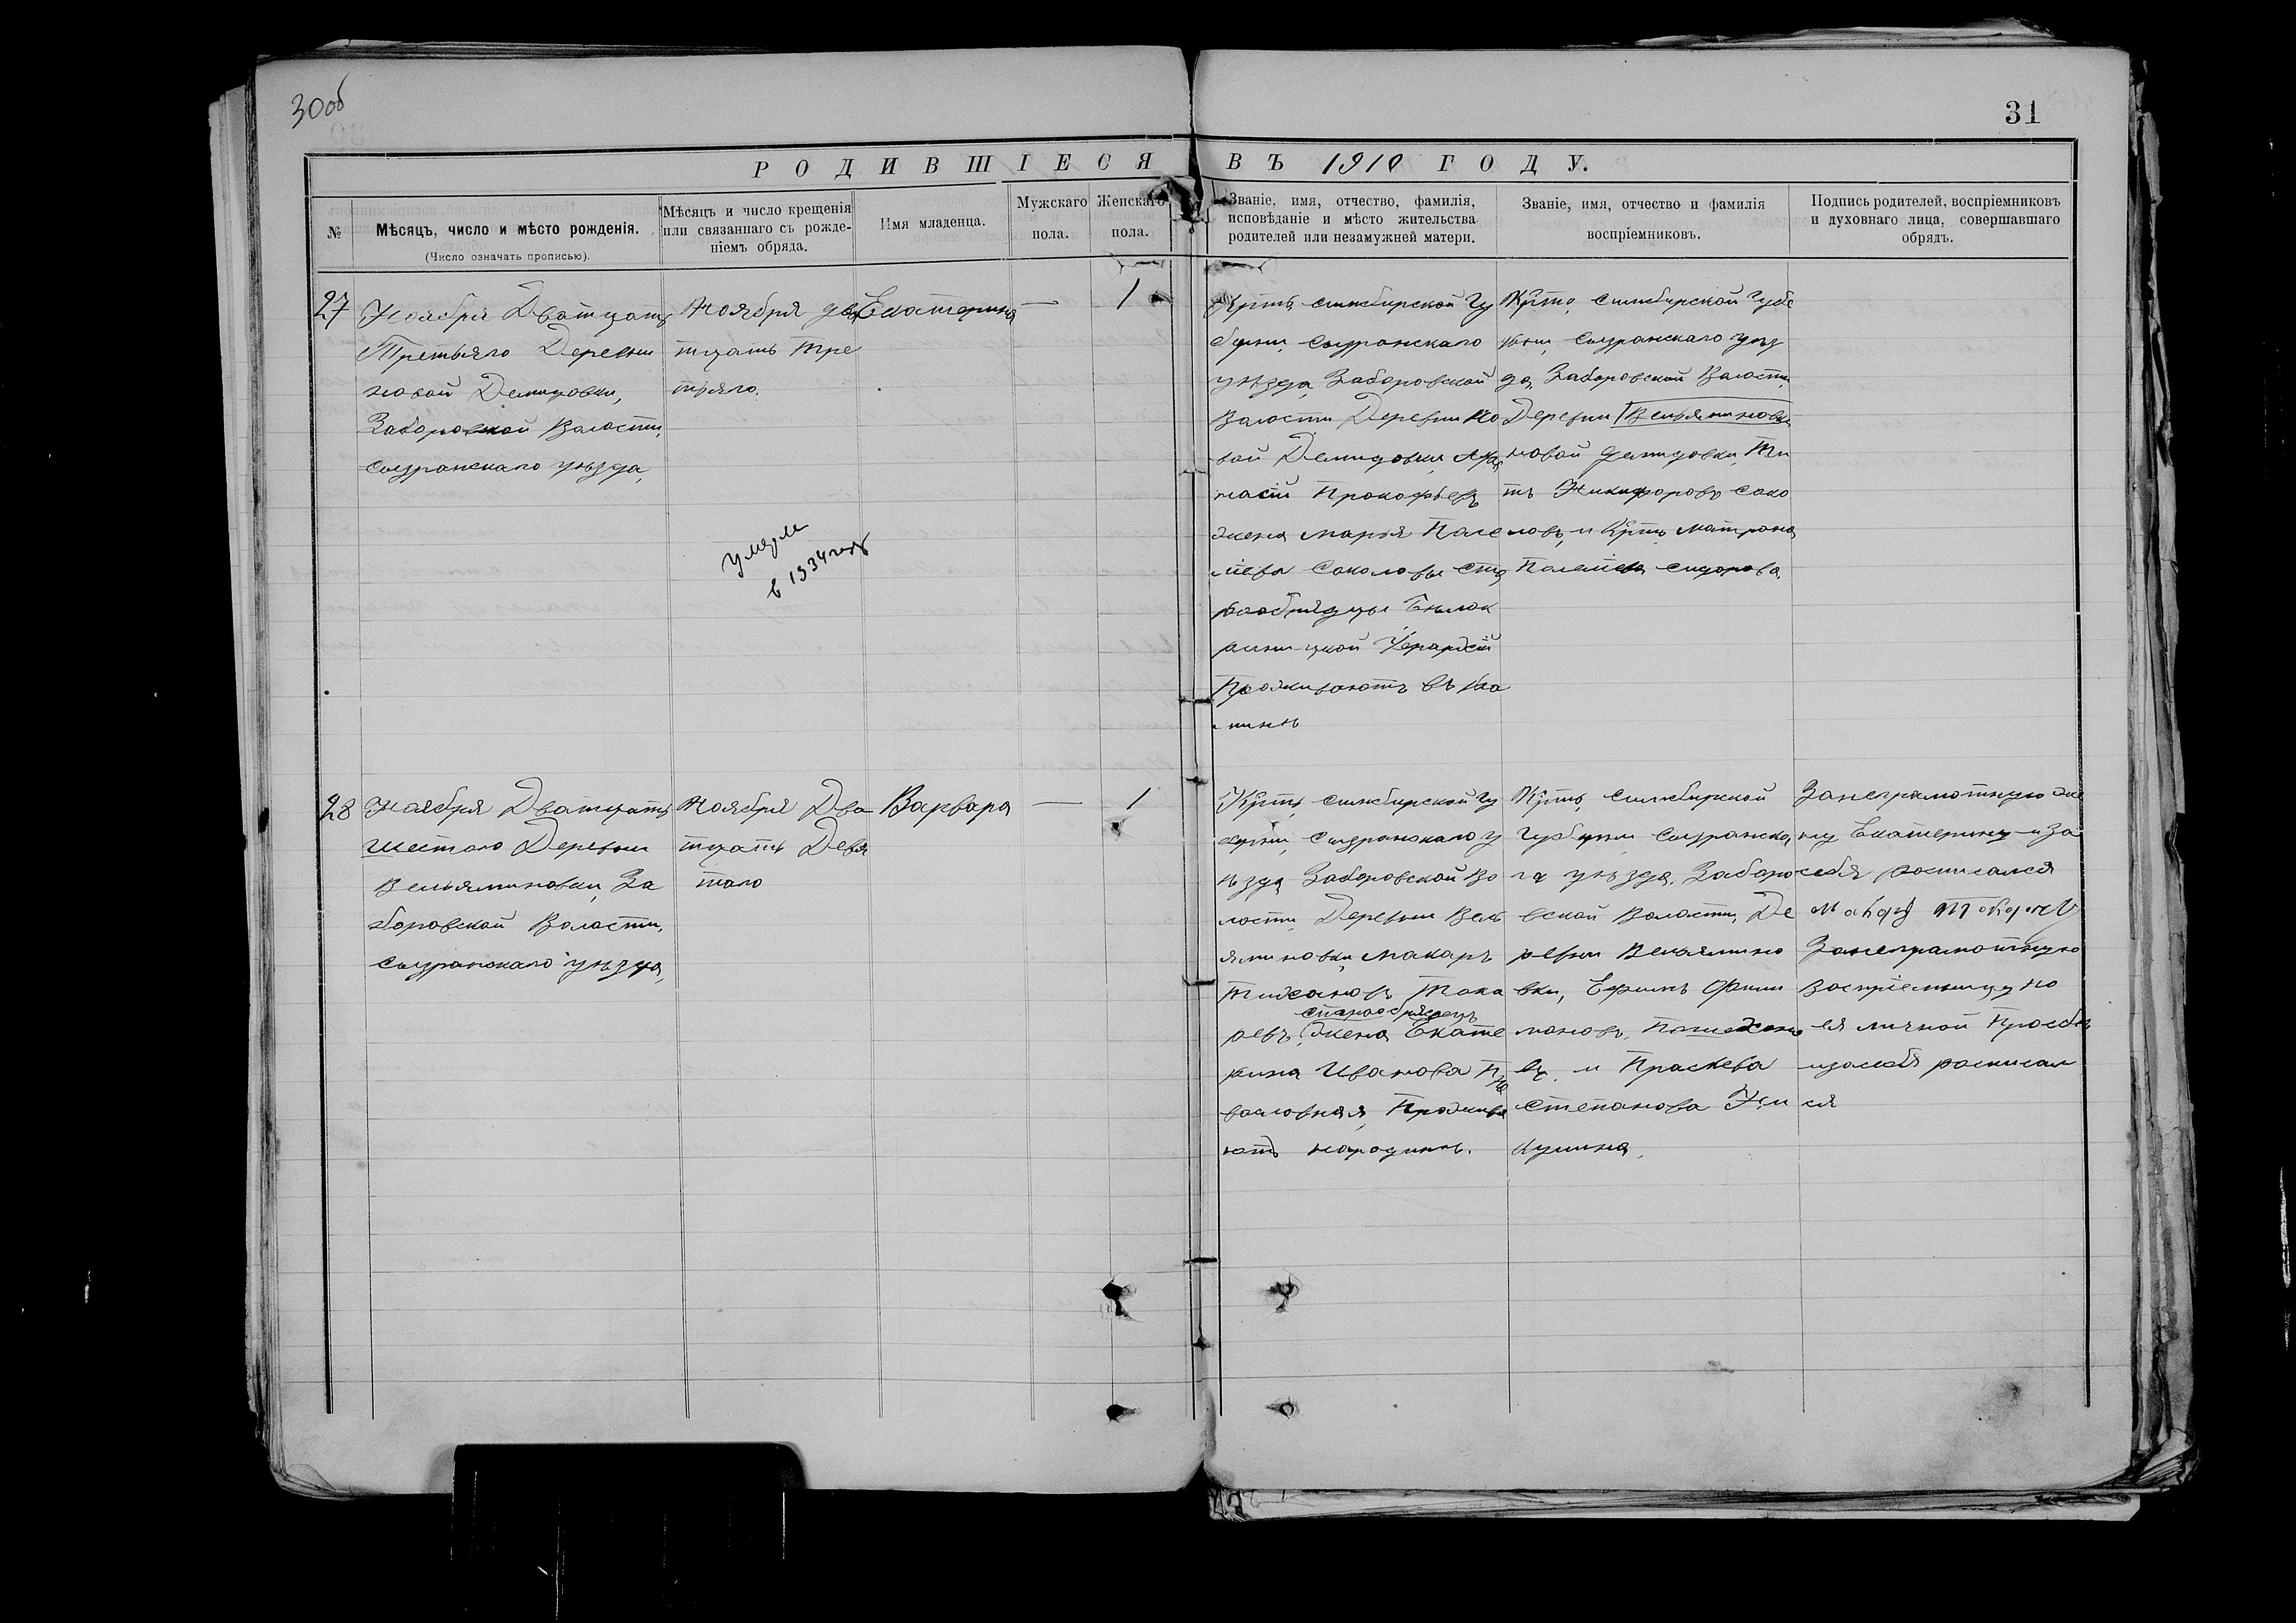 30об
31
РОДИВШІЕСЯ ВЪ 1910 ГОДУ.
№
Мѣсяцъ, число и мѣсто рожденія.
(Число означать прописью).
Мѣсяцъ и число крещенія
или связаннаго съ рожде-
ніемъ обряда.
Имя младенца.
Мужскаго
пола.
Женскаго
пола.
Званіе, имя, отчество, фамилія,
исповѣданіе и мѣсто жительства
родителей или незамужней матери.
Званіе, имя, отчество и фамилія
воспріемниковъ.
Подпись родителей, воспріемниковъ
и духовнаго лица, совершавшаго
обрядъ.
27
Ноября Дватцать
Третьяго Деревни
новой Демидовки,
Заборовской Валости,
Сызранскаго уѣзда,
Ноября два
тцать тре
тьяго.
Екатерина
—
1
умерла
в 1934 году
Крть. симбирской Гу
бернии, Сызранскаго
уѣзда, Заборовской
Валости Деревни Но
вой Демидовки, Афа
насiй Прокофьевъ
жена марья Пале
Соколовы Ста
рообрядцы Бѣлок
риницкой Іерархiи
Проживаютъ въ
Крть. симбирской Губе
рнии, Сызранскаго уѣз
да, Заборовской Валости,
Деревни Вельяминовки
новой демидовки, Ти
тъ Никифоровъ Соко
ловъ, и Крть. матрона
Сидорова.
28
Ноября Дватцать
шестаго Деревни
Вельяминовки, За
боровской Валости,
Сызранскаго уѣзда,
Ноября Два
тцать Девя
таго
Варвара
—
1
Крть. симбирской Гу
бернии, Сызранскаго у
ѣзда Заборовской Во
лости, Деревни Вель
яминовки, Макаръ
Тихановъ Тока
старообрядецъ
ревъ, жена Екате
рина Иванова Пра
вославная, Прожива
ютъ народинѣ.
Крть, Симбирской
Губернии Сызранска
га уѣзда, Заборо
вской Валости, Де
ревни Вельямино
вки, Ефимъ Фили
моновъ,
въ, и Праскева
Степанова Ни
кулина.
Занеграмотную же
ну Екатерину и за
себя росписался
Макаръ Токарев
Занеграмотную
Воспріемницу по
ея личной Прозбѣ
изасебя росписал
ся